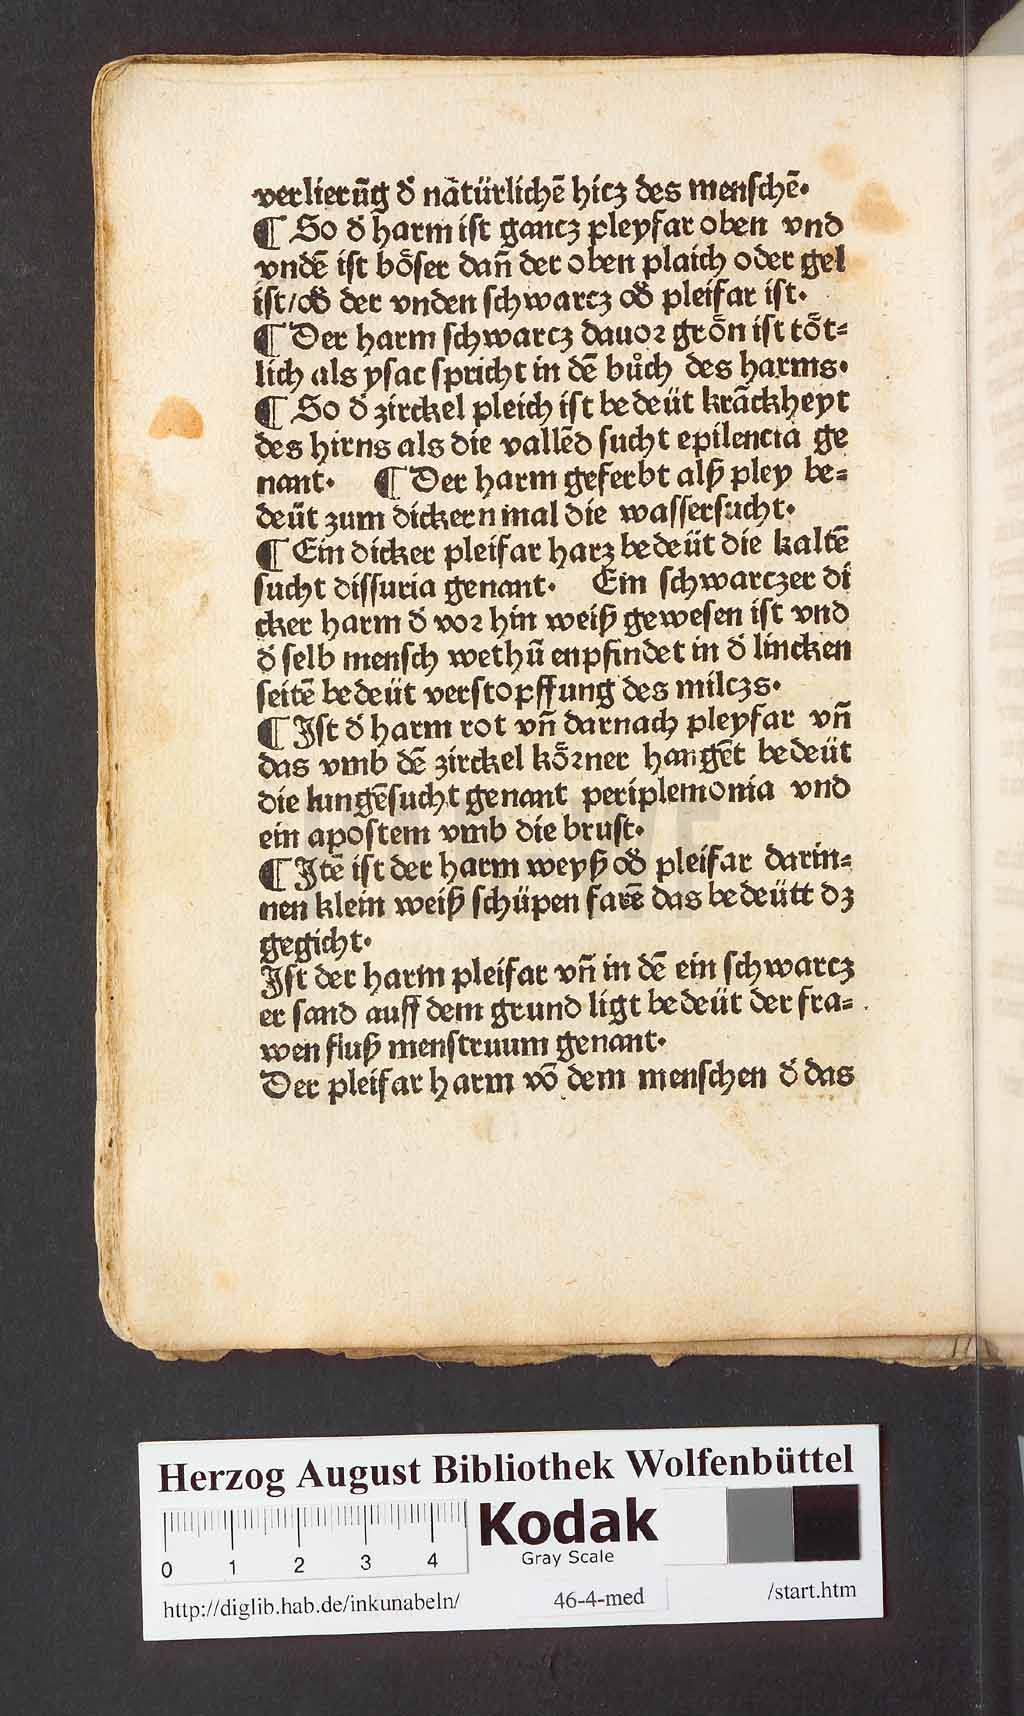 verlierūg d̄ nātürlichē hicz des menschē.
¶ So d̄ harm ist gancz pleyfar oben vnd
vndē ist bo͛ser dañ der oben plaich oder gel
ist/od̄ der vnden schwarcz od̄ pleifar ist.
¶ Der harm schwarcz dauoꝛ gro͛n ist to͛t⸗
lich als ysac spricht in dē bůch des harms.
¶ So d̄ zirckel pleich ist bedeüt krāckheyt
des hirns als die vallēd sucht epilencia ge
nant. ¶ Der harm geferbt alß pley be⸗
deüt zum dickern mal die wassersucht.
¶ Ein dicker pleifar harz bedeüt die kaltē
sucht dissuria genant. Ein schwarczer di
cker harm d̄ voꝛ hin weiß gewesen ist vnd
d̄ selb mensch wethū enpfindet in d̄ lincken
seitē bedeüt verstopffung des milczs.
¶ Ist d̄ harm rot vñ darnach pleyfar vñ
das vmb dē zirckel ko͛ꝛner hangēt bedeüt
die lungēsucht genant periplemonia vnd
ein apostem vmb die brust.
¶ Itē ist der harm weyß od̄ pleifar darin⸗
nen klein weiß schüpen farē das bedeütt dz
gegicht.
Ist der harm pleifar vñ in dē ein schwarcz
er sand auff dem grund ligt bedeüt der fra⸗
wen fluß menstruum genant.
Der pleifar harm vō dem menschen d̄ das
Herzog August Bibliothek Wolfenbüttel
0 1 2 3 4
Kodak
Gray Scale
http://diglib.hab.de/inkunabeln/ 46-4-med /start.htm